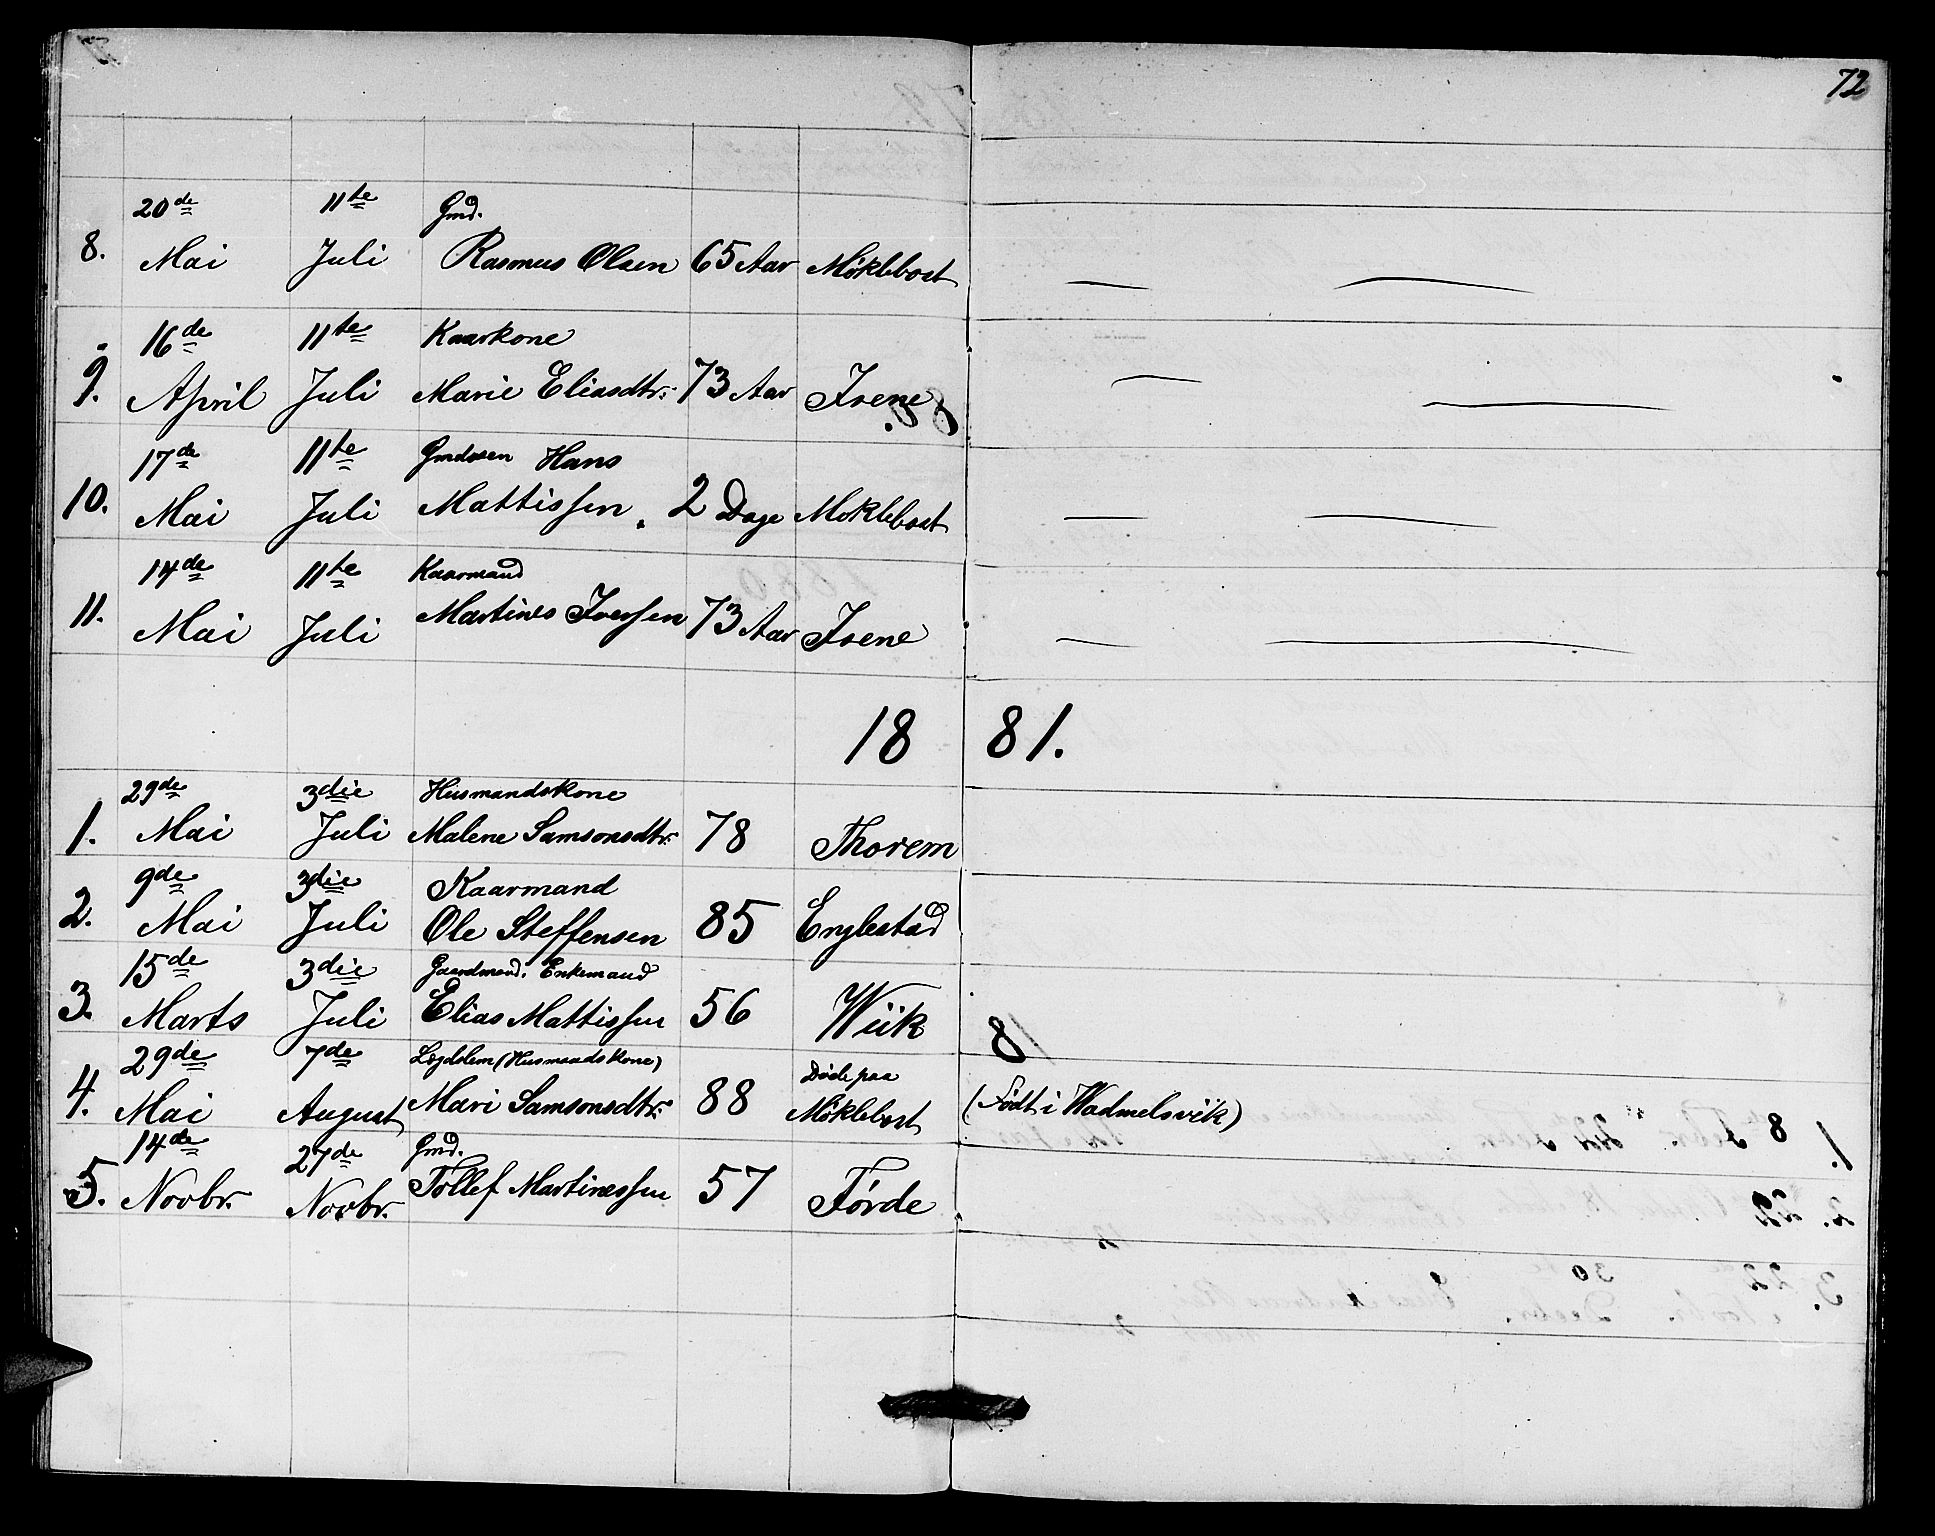 72
20de 11te Gmd.
8. Mai Juli Rasmus Olsen 65 Aar Møklebost
16de 11te Kaarkone
9. April Juli Marie Eliasdtr: 73 Aar Isene
17de 11te Gmdssen Hans
10. Mai Juli Mattissen. 2 Dage Møklebost
14de 11te Kaarmand
11. Mai Juli Martines Iversen 73 Aar Isene
1881.
29de 3die Husmandskone
1. Mai Juli Malene Samsonsdtr: 78 Thorem
9de 3die Kaarmand
2. Mai Juli Ole Steffensen 85 Englestad
15de 3die Gaardmand. Enkemand
3. Marts Juli Elias Mattissen 56 Wiik
29de 7de Lægdslem (Husmandskone) Døde paa
4. Mai August Mari Samsonsdtr: 88 Møklebost (Født i Wadmelsvik)
14de 27de Gmd.
5. Novbr. Novbr. Tollef Martinessen 57 Førde